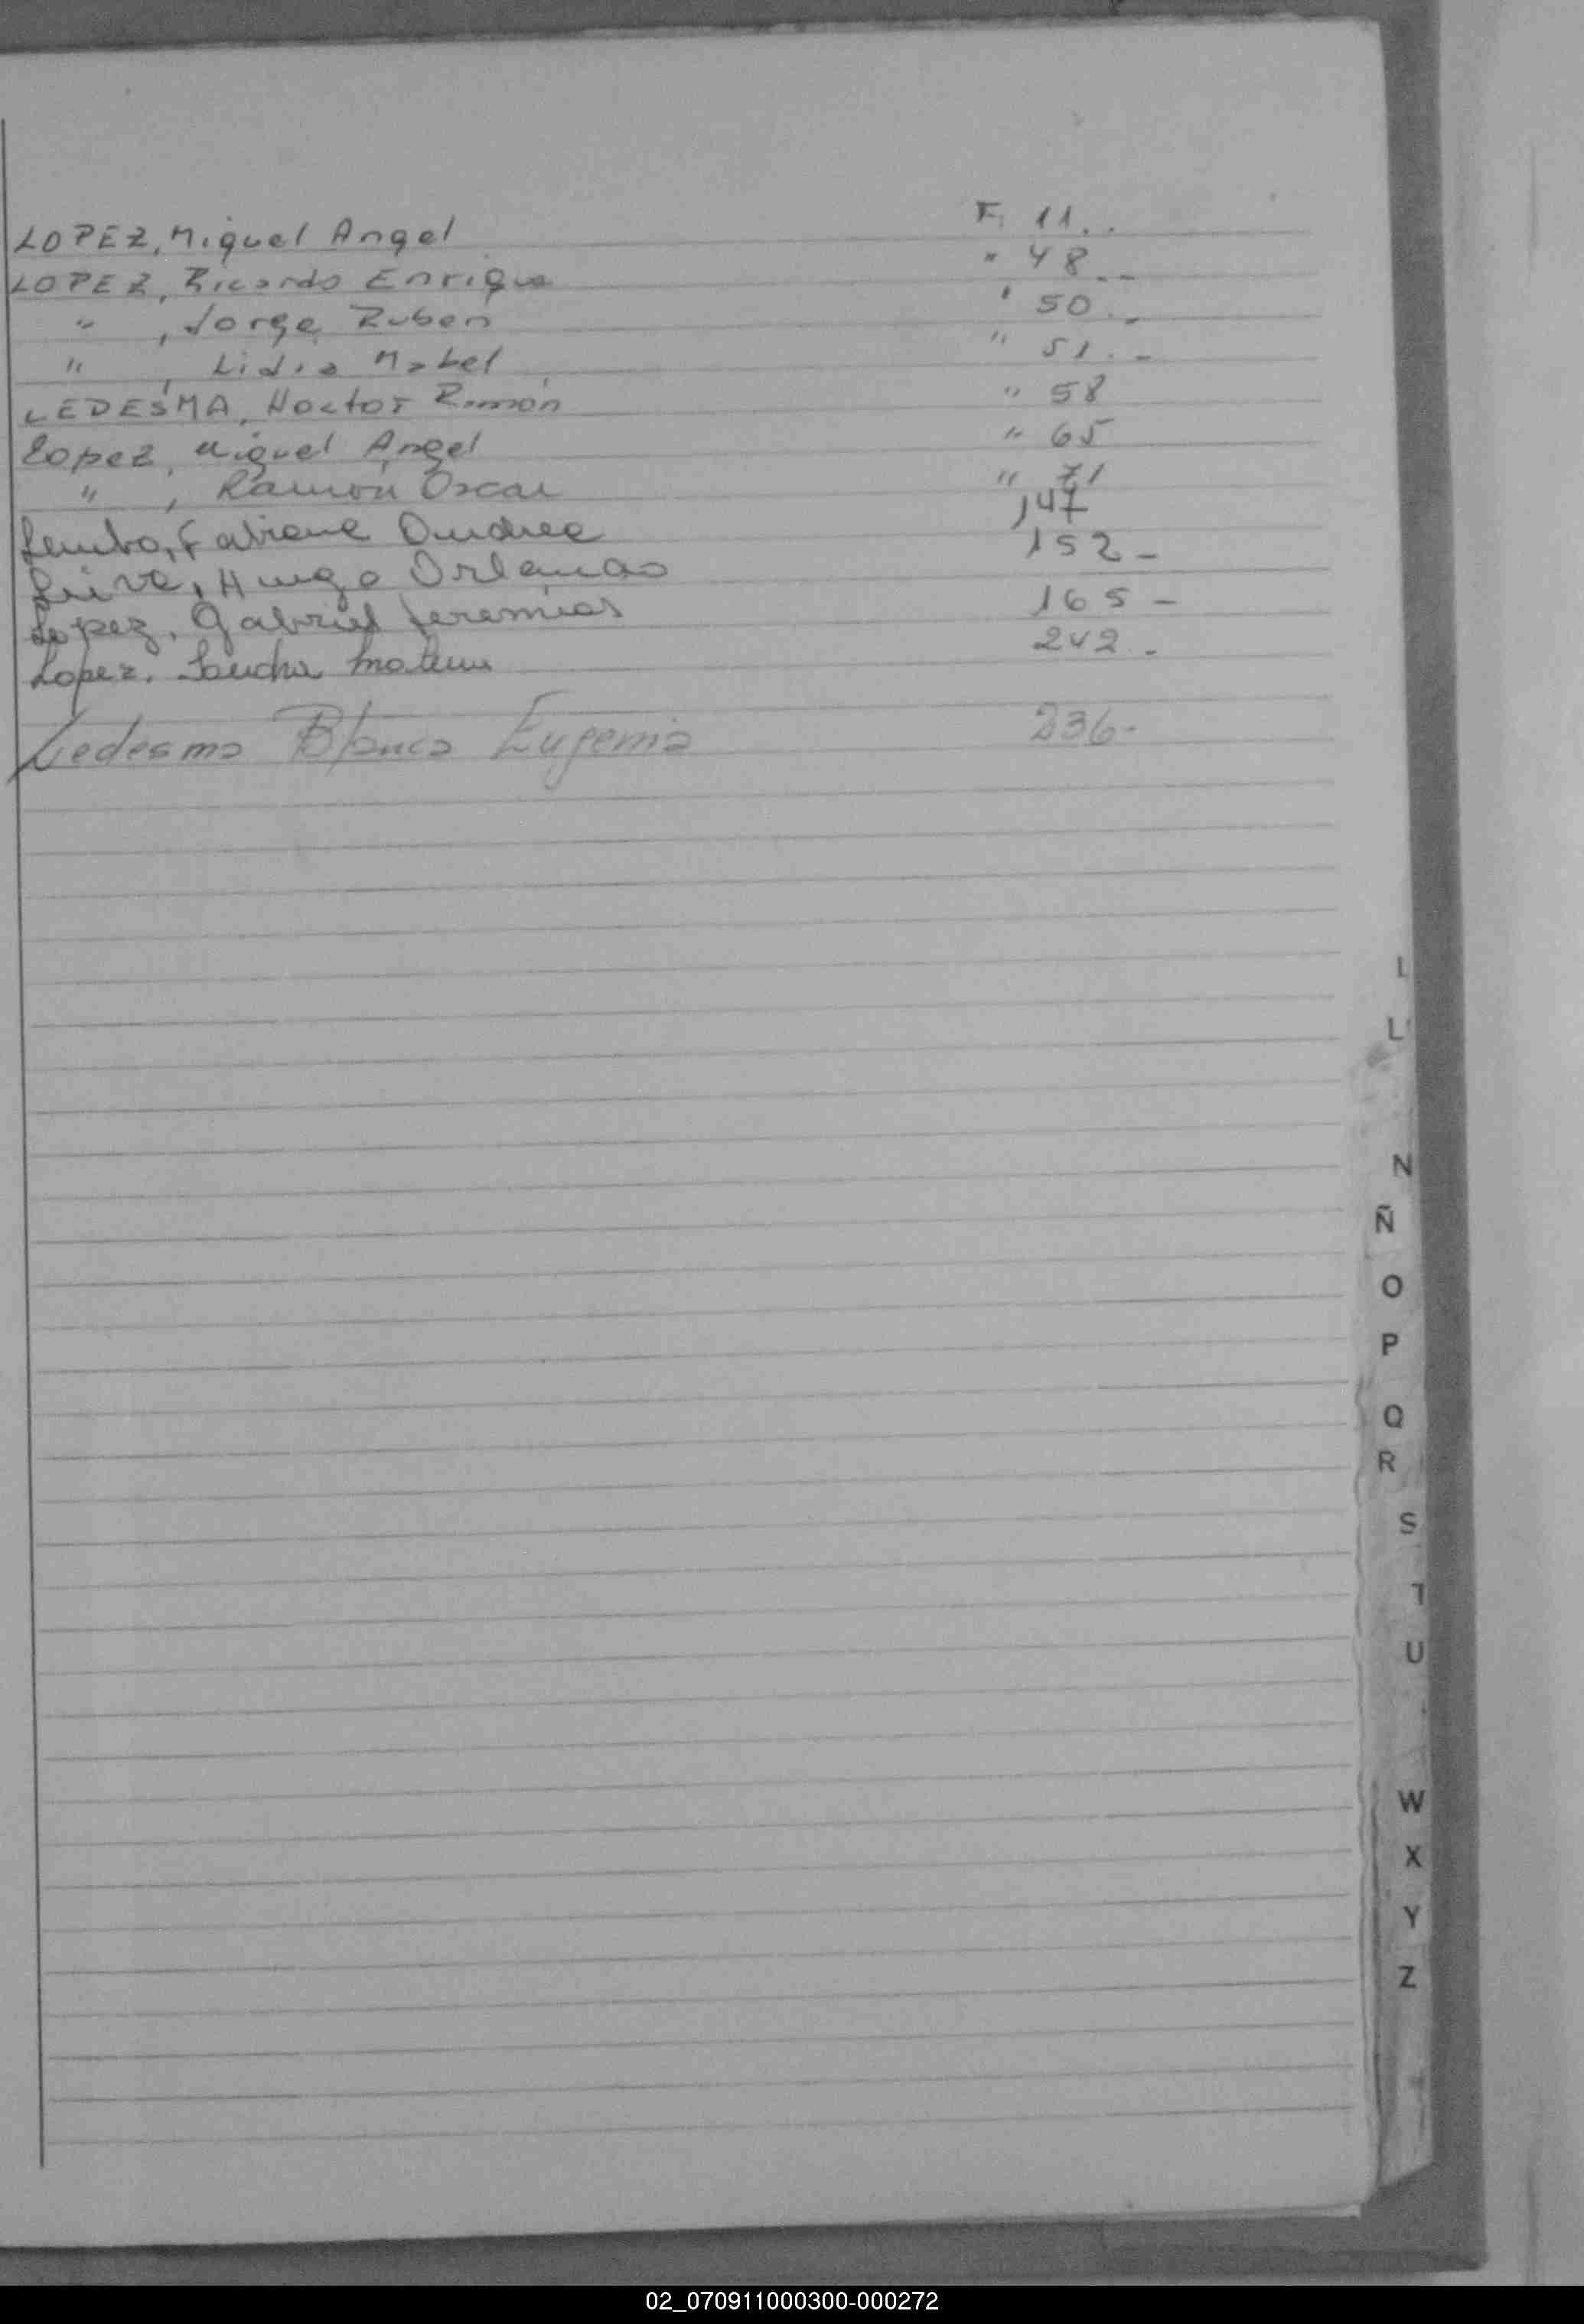 LOPEZ, Miguel Angel F. 11..
LOPEZ, Ricardo Enrique " 48.--
" , Jorge Ruben ' 50.-
" , Lidia Mabel " 51.-
LEDESMA, Hector Ramón " 58
Lopez, Miguel Angel " 65
" , Ramón Oscar " 71
Lembo, Fabiana Andrea 147
Leiva, Hugo Orlando 152-
Lopez, Gabriel Jeremias 165-
Lopez. 242.-
Ledesma Blanca Eugenia 236-
L
L
N
Ñ
O
P
Q
R
S
T
U
W
X
Y
Z
02_070911000300-000272